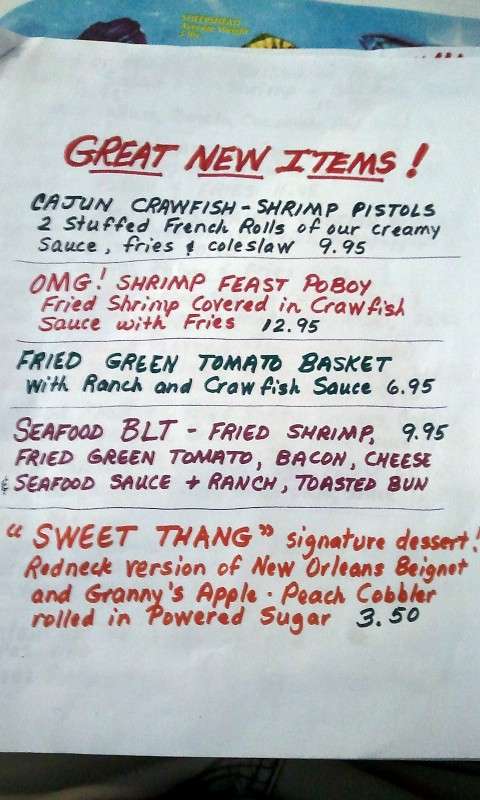 SHEEPSHEAD
Average Weight
GREAT NEW ITEMS!
CAJUN CRAWFISH-SHRIMP PISTOLS
2 Stuffed French Rolls of our creamy
Sauce, fries & coleslaw 9.95
OMG! SHRIMP FEAST POBOY
Fried Shrimp Covered in Crawfish
Sauce with Fries 12.95
FRIED GREEN TOMATO BASKET
with Ranch and Crawfish Sauce 6.95
SEAFOOD BLT - FRIED SHRIMP, 9.95
FRIED GREEN TOMATO, BACON, CHEESE
& SEAFOOD SAUCE + RANCH, TOASTED BUN
"SWEET THANG" signature dessert!
Redneck version of New Orleans Beignet
and Granny's Apple - Peach Cobbler
rolled in Powered Sugar 3.50